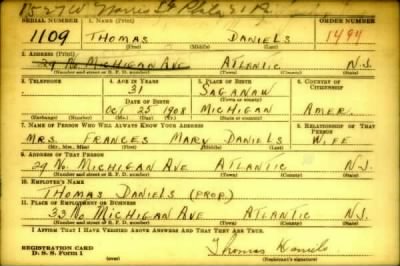 1527 W Norris St Phila 21 Pa
SERIAL NUMBER 1. NAME (Print) ORDER NUMBER
1109 THOMAS DANIELS 1494
(First) (Middle) (Last)
2. ADDRESS (Print)
29 No MICHIGAN AVE ATLANTIC N.J.
(Number and street or R. F. D. number) (Town) (County) (State)
3. TELEPHONE 4. AGE IN YEARS 5. PLACE OF BIRTH 6. COUNTRY OF CITIZENSHIP
31 SAGANAW
DATE OF BIRTH (Town or county)
OCT 25 1908 MICHIGAN AMER.
(Exchange) (Number) (Mo.) (Day) (Yr.) (State or country)
7. NAME OF PERSON WHO WILL ALWAYS KNOW YOUR ADDRESS 8. RELATIONSHIP OF THAT PERSON
MRS. FRANCES MARY DANIELS WIFE
(Mr., Mrs., Miss) (First) (Middle) (Last)
9. ADDRESS OF THAT PERSON
29 No MICHIGAN AVE ATLANTIC N.J.
(Number and street or R. F. D. number) (Town) (County) (State)
10. EMPLOYER'S NAME
THOMAS DANIELS (PROP.)
11. PLACE OF EMPLOYMENT OR BUSINESS
33 No MICHIGAN AVE ATLANTIC N.J.
(Number and street or R. F. D. number) (Town) (County) (State)
I AFFIRM THAT I HAVE VERIFIED ABOVE ANSWERS AND THAT THEY ARE TRUE.
REGISTRATION CARD
D. S. S. Form 1
Thomas Daniels
(Registrant's signature)